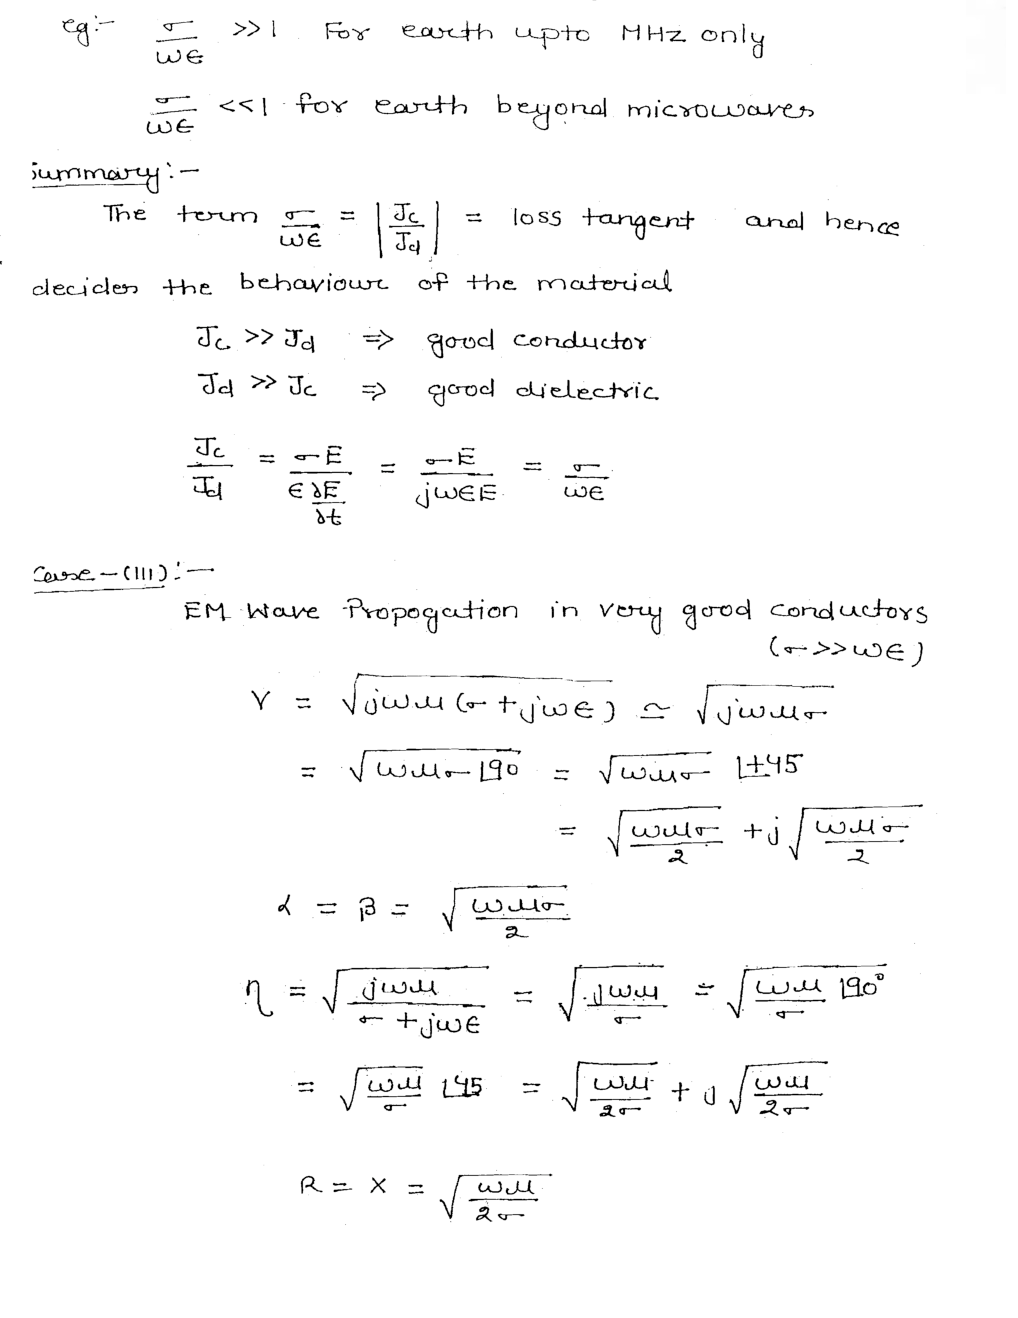 eg:- σ/ωϵ >> 1 For earth upto MHz only
σ/ωϵ << 1 for earth beyond microwaves
summary:-
The term σ/ωϵ = |Jc/Jd| = loss tangent and hence
decides the behaviour of the material
Jc >> Jd ⇒ good conductor
Jd >> Jc ⇒ good dielectric
Jc/Jd = σE/(ϵ ∂E/∂t) = σE/(jωϵE) = σ/ωϵ
Case-(III):-
EM Wave Propogation in very good conductors
(σ>>ωϵ)
γ = √(jωμ(σ+jωϵ)) ≃ √(jωμσ)
= √(ωμσ ∠90) = √(ωμσ) ∠+45
= √(ωμσ/2) + j√(ωμσ/2)
α = β = √(ωμσ/2)
η = √(jωμ/(σ+jωϵ)) = √(jωμ/σ) = √(ωμ/σ ∠90°)
= √(ωμ/σ) ∠45 = √(ωμ/2σ) + j√(ωμ/2σ)
R = X = √(ωμ/2σ)